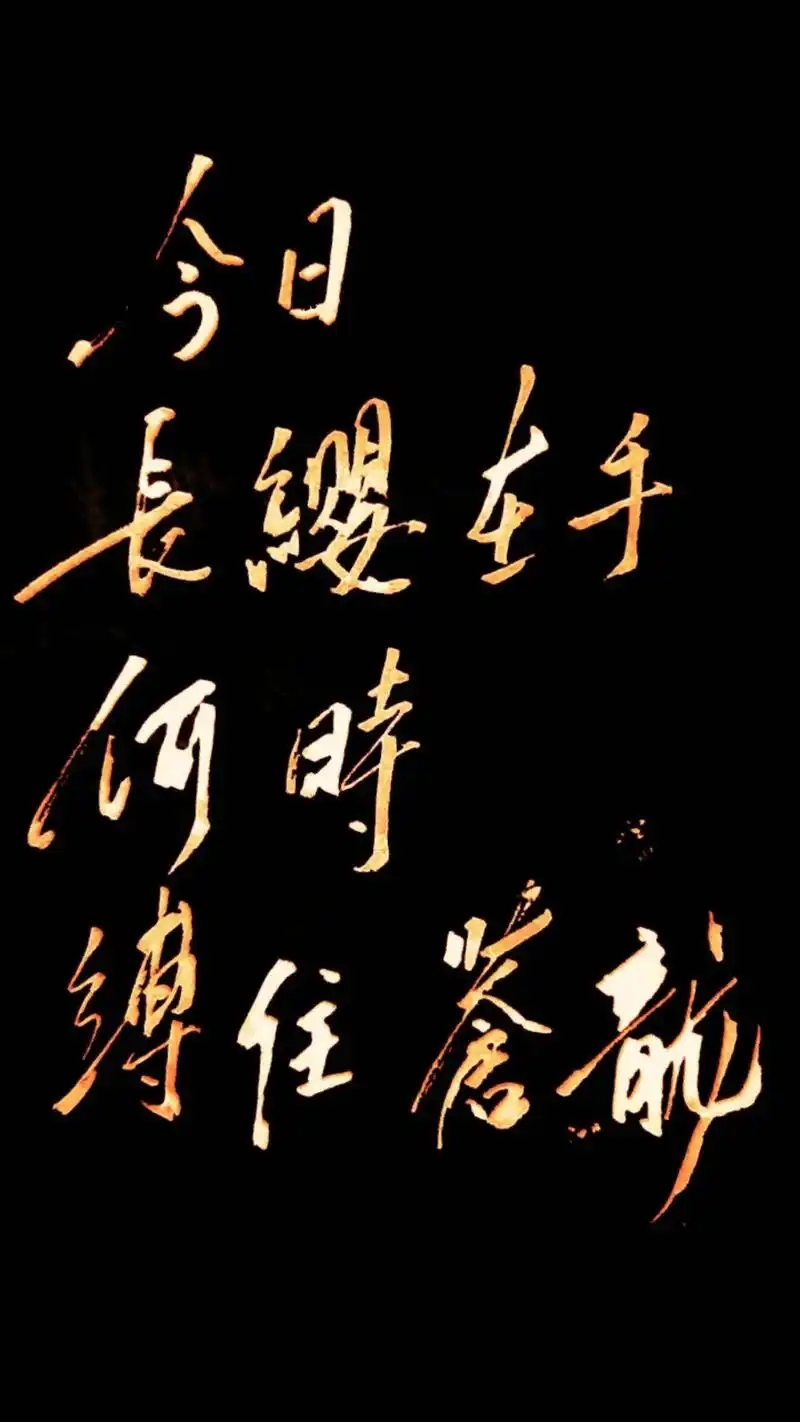 今日
長纓在手
何時
縛住蒼龍